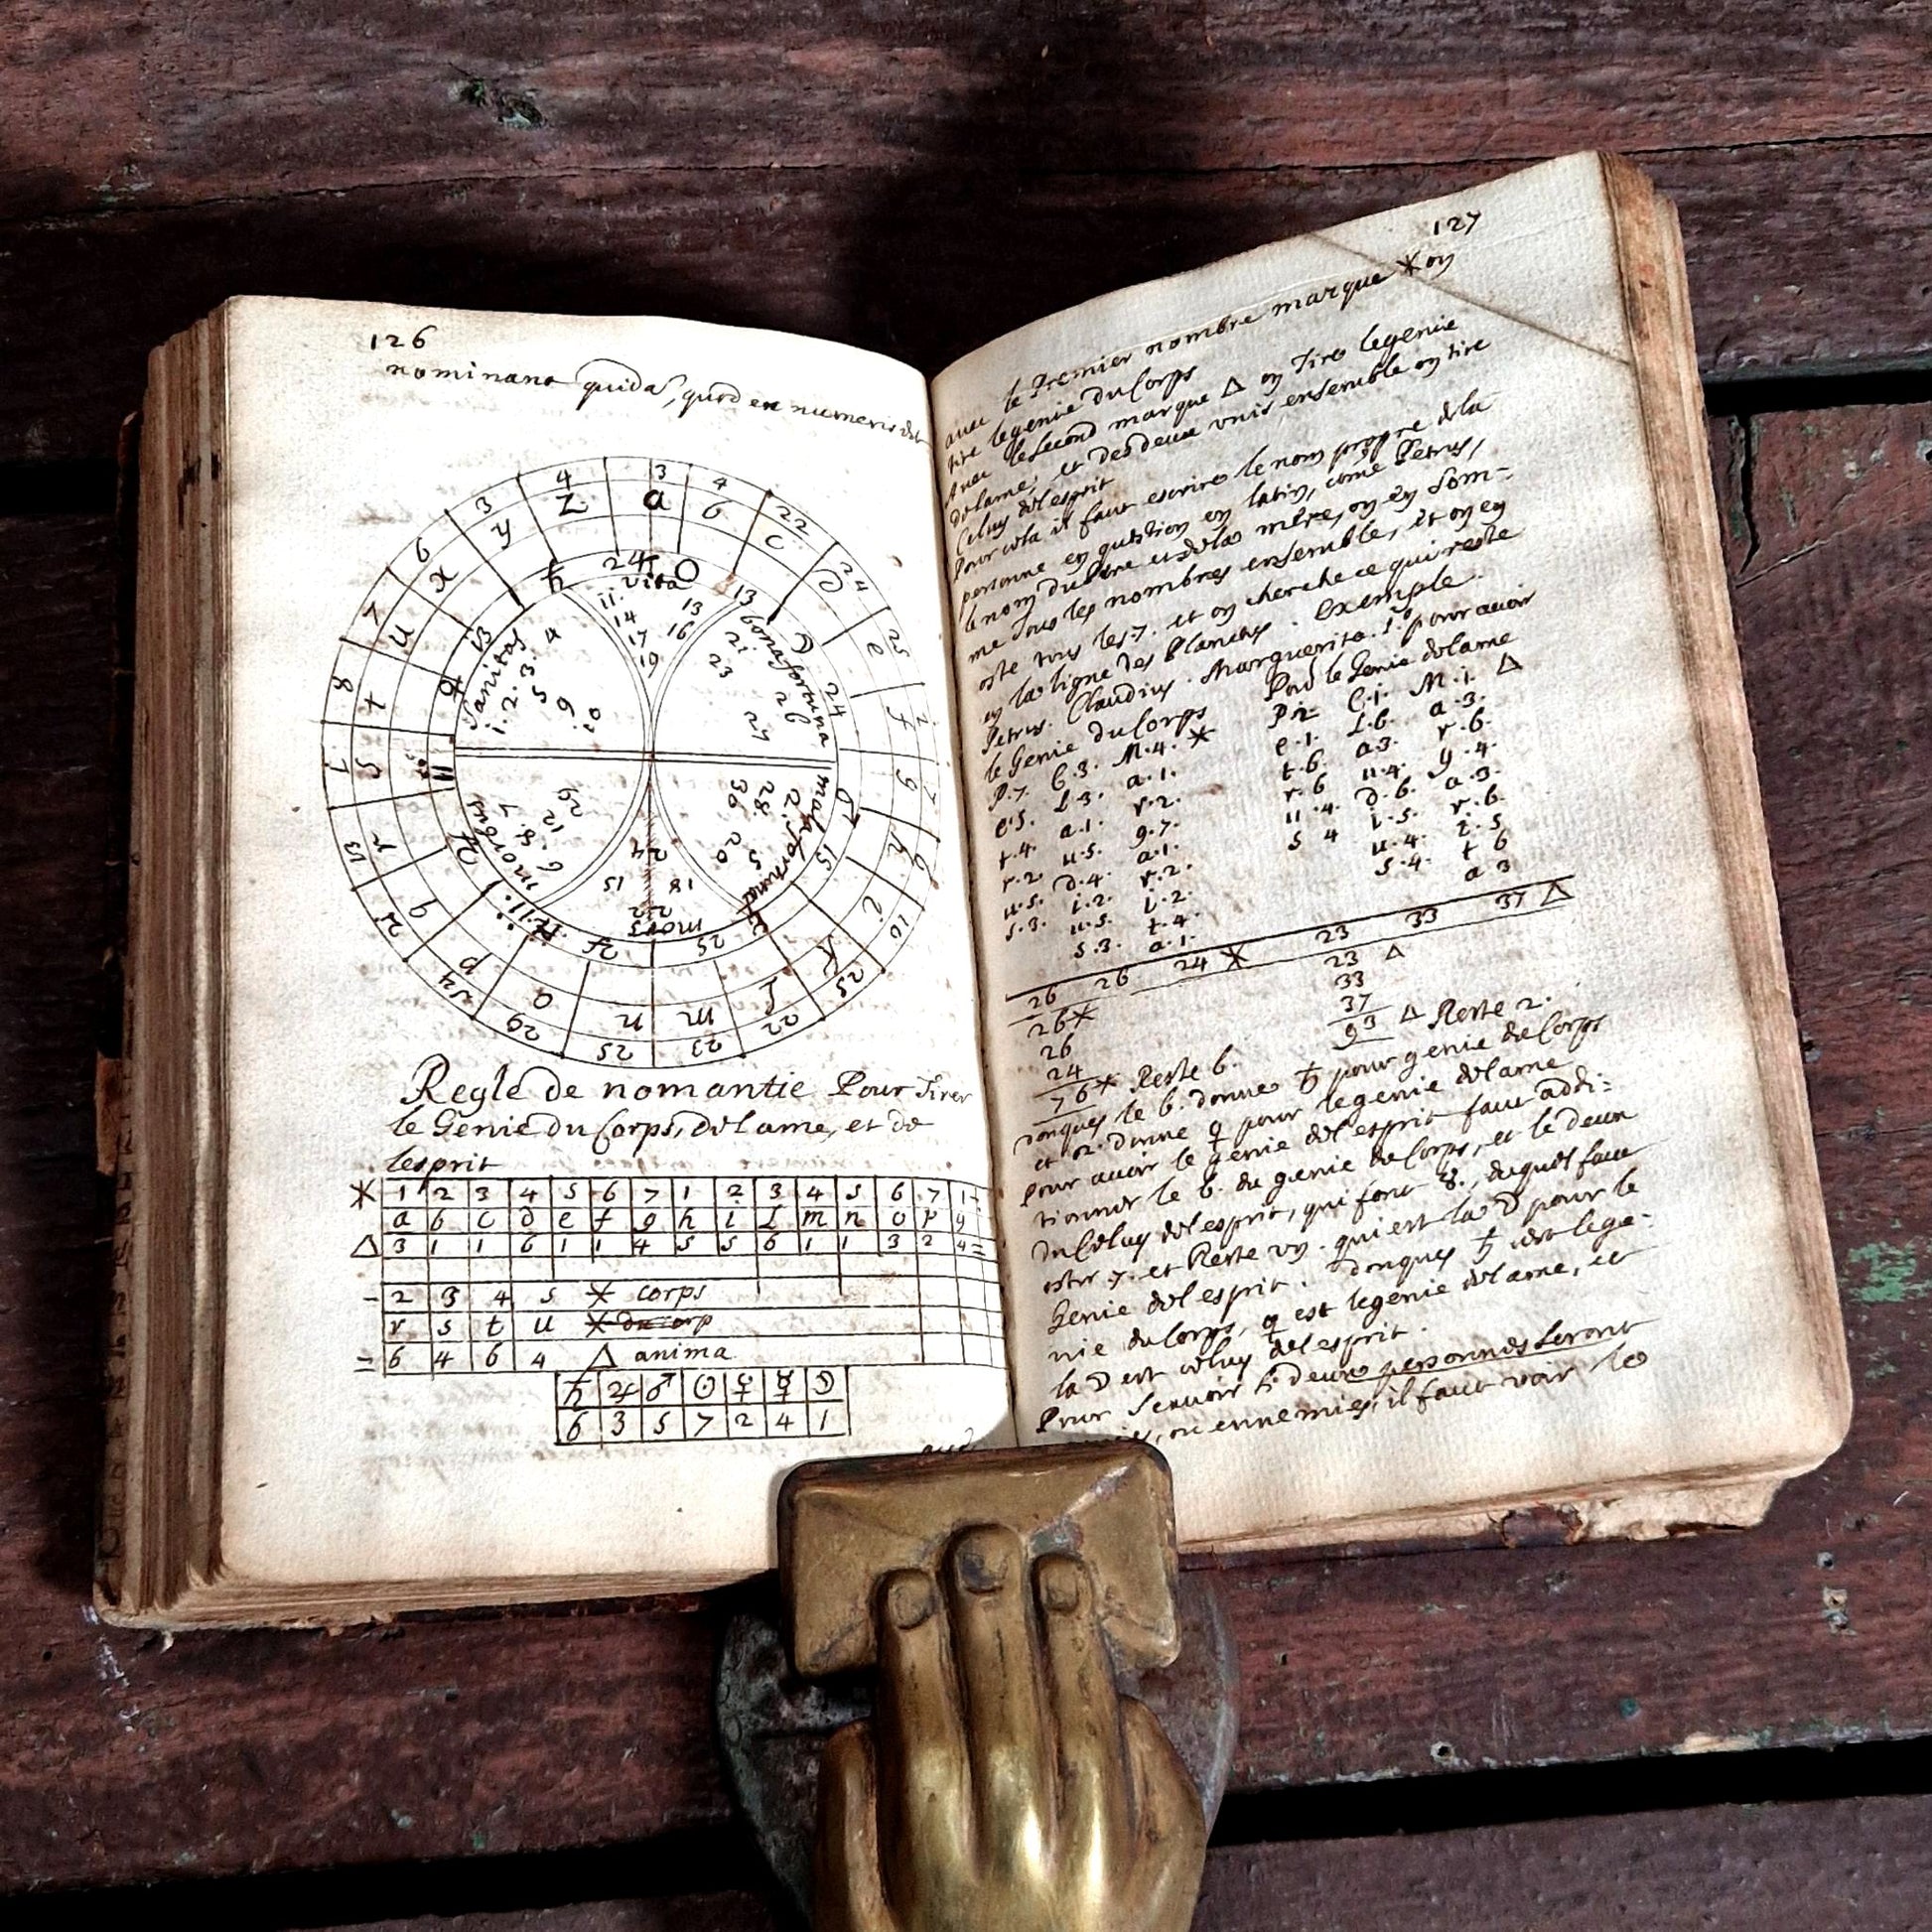 126
nominant quidã, quod ex numeris
3 4 22 24 25 2 7 6 10 25 22 23 25 29 54 12 13 7 8 7 6 3 4
a b c d e f g h i K l m n o p q r s t u x y z
vita
11. 13
14 16
17
19
bona fortuna
21 26
23 27
mala fortuna
28 5
30 20
mors
24
15 18
22
morbus
29
12
7 8 6
Sanitas
1. 2. 3. 4
5 9 10
Regle de nomantie Pour Tirer
le Genie du Corps, de lame, et de
lesprit
* 1 2 3 4 5 6 7 1 2 3 4 5 6 7 1-
a b c d e f g h i L m n o p q
△ 3 1 1 6 1 1 4 5 5 6 1 1 3 2 4=
- 2 3 4 5 * corps
r s t u
= 6 4 6 4 △ anima
♄ ♃ ♂ ☉ ♀ ☿ ☽
6 3 5 7 2 4 1
127
avec le Premier nombre marque * on
tire legenie du Corps
Avec le second marque △ on Tire legenie
de lame, et des deux unis ensemble on tire
Celuy de lesprit
Pour cela il faut escrire le nom propre de la
personne en question en latin, come Petrus,
le nom du pere et de la mere, on en som-
me tous les nombres ensemble, et on en
oste tous les 7. et on cherche ce qui reste
en la ligne des Planetes. Exemple.
Petrus. Claudius. Marguerita. pour avoir
le Genie du Corps Pour le Genie de lame
P.7. C.3. M.4. * P.2 C.1. M.1. △
e.5. L.3. a.1. e.1. L.6. a.3.
t.4. a.1. r.2. t.6. a.3. r.6.
r.2. u.5. g.7. r.6 u.4. g.4.
u.5. d.4. a.1. u.4. d.6. a.3.
s.3. i.2. r.2. s 4 i.5. r.6.
u.5. i.2. u.4. i.5
s.3. t.4. s.4. t 6
a.1. a 3
26 26 24 * 23 33 37 △
26* 23 △
26 33
24 37
76* Reste 6. 93 △ Reste 2.
donques le 6. donne ♄ pour genie du Corps
et 2. donne ♀ pour legenie de lame
pour avoir le genie de lesprit faut addi:
tionner le 6. du genie du Corps, et le deux
du Celuy de lesprit, qui font 8., duquel faut
oster 7. et Reste un. qui est la ☽ pour le
Genie de lesprit. Donques ♄ est lege-
nie du Corps, ♀ est legenie de lame, et
la ☽ est celuy de lesprit.
Pour scavoir si deux personnes seront
ou ennemies, il faut voir le